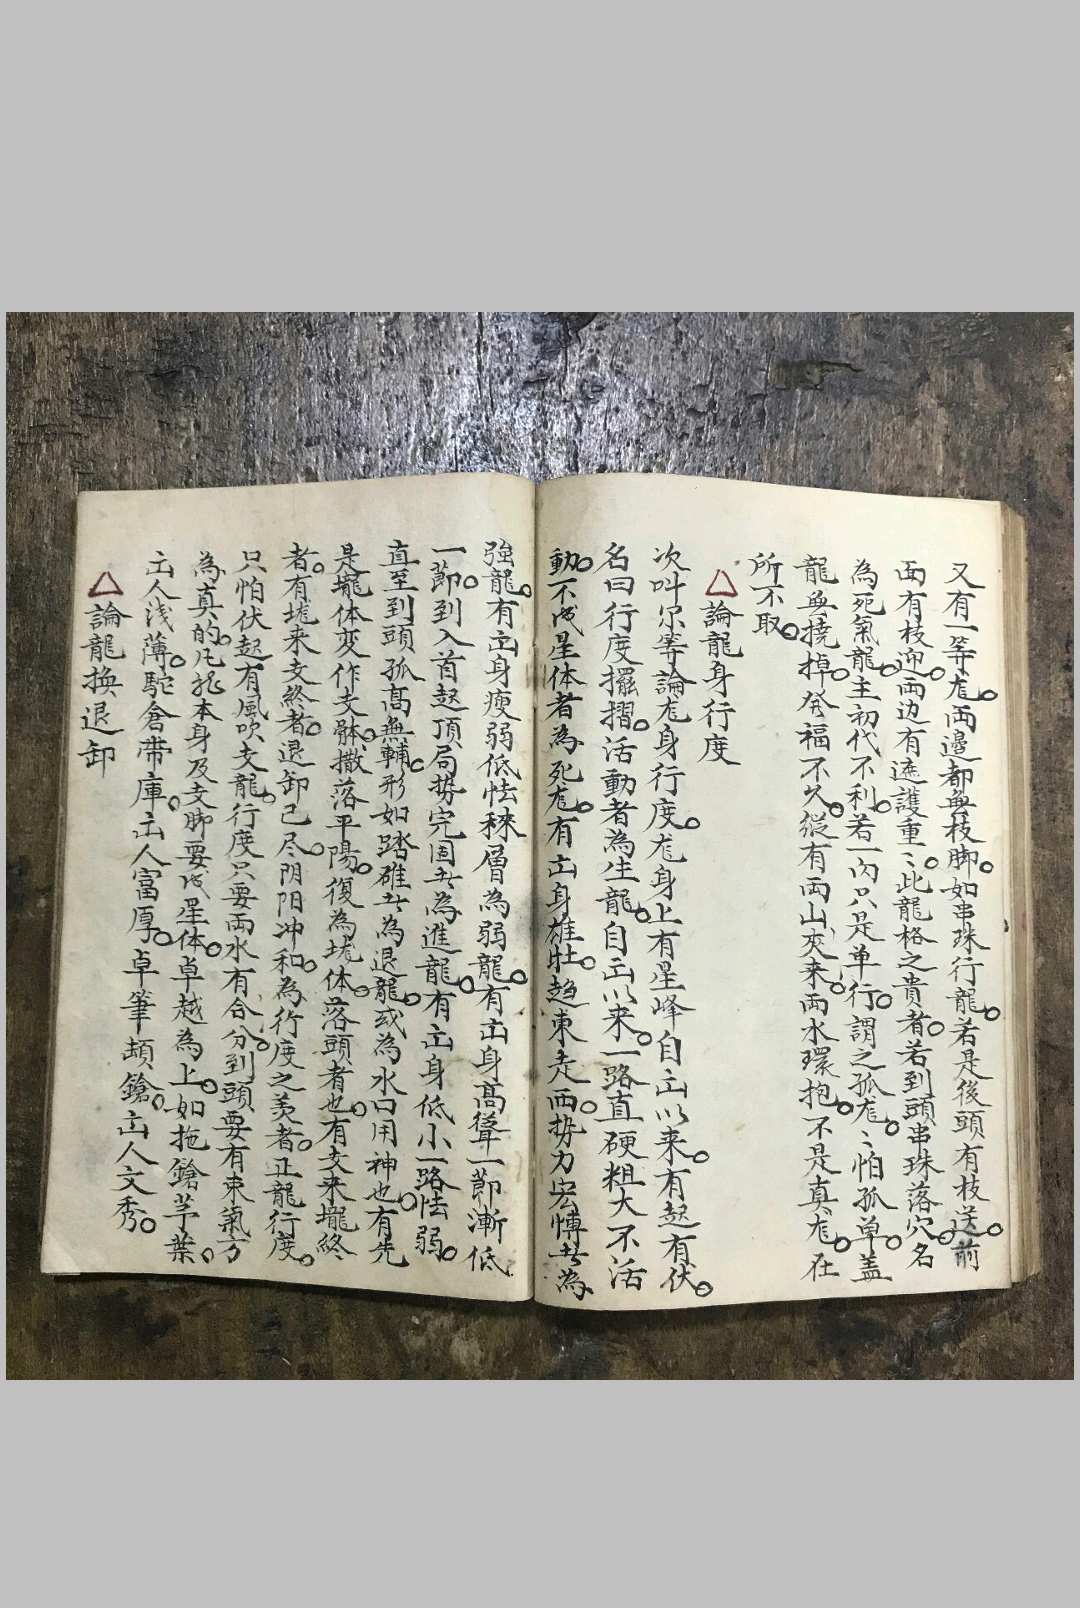 又有一等龙。両邊都無枝脚。如串珠行龍。若是後頭有枝送。前
面有枝迎。両边有遮護重〻。此龍格之貴者。若到頭串珠落穴。名
為死氣龍。主初代不利。若一内只是单行。謂之孤龙。〻怕孤单。盖
龍無撓掉。発福不久。縦有両山夾来。両水環抱。不是真龙。在
所不取。
△論龍身行度
次叫宗等論龙身行度。龙身上有星峰自出以来。有起有伏。
名曰行度擺摺。活動者為生龍。自出以来。一路直硬粗大不活
動。不成星体者為死龙。有出身雄壮。趋東走西。势力宏愽。此為
強龍。有出身瘦弱低怯稞層為弱龍。有出身高聳一節漸低
一節。到入首起頂局势完固此為進龍。有出身低小一路怯弱。
直至到頭孤高無輔。形如踏碓此為退龍。或為水口用神也。有先
是壠体变作支体。撒落平陽。復為垅体。落頭者也。有支来壠終
者。有垅来支終者。退卸已尽。阴阳冲和。為行度之美者。正龍行度。
只怕伏起有風吹。支龍行度只要両水有合分。到頭要有束氣方
為真的。凡龙本身及支脚要成星体。卓越為上。如拖鎗芋葉。
出人浅薄。駝倉帶庫。出人富厚。卓筆頓鎗。出人文秀。
△論龍換退卸